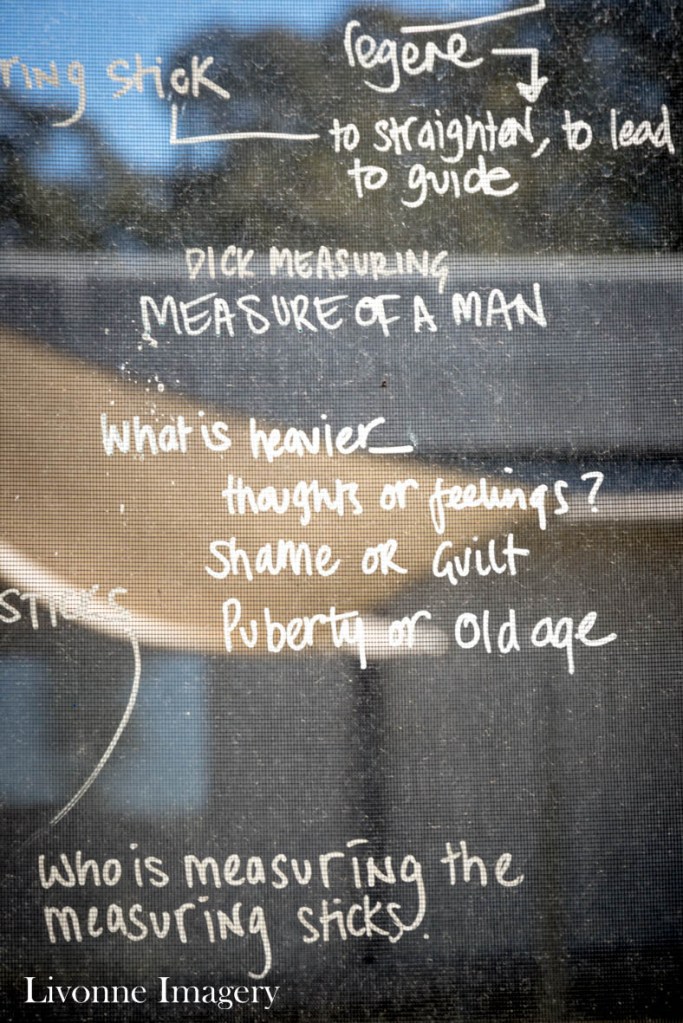 regere
ring stick
to straighten, to lead
to guide
DICK MEASURING
MEASURE OF A MAN
What is heavier
thoughts or feelings?
Shame or Guilt
STICKS
Puberty or Old age
Who is measuring the
measuring sticks.
Livonne Imagery